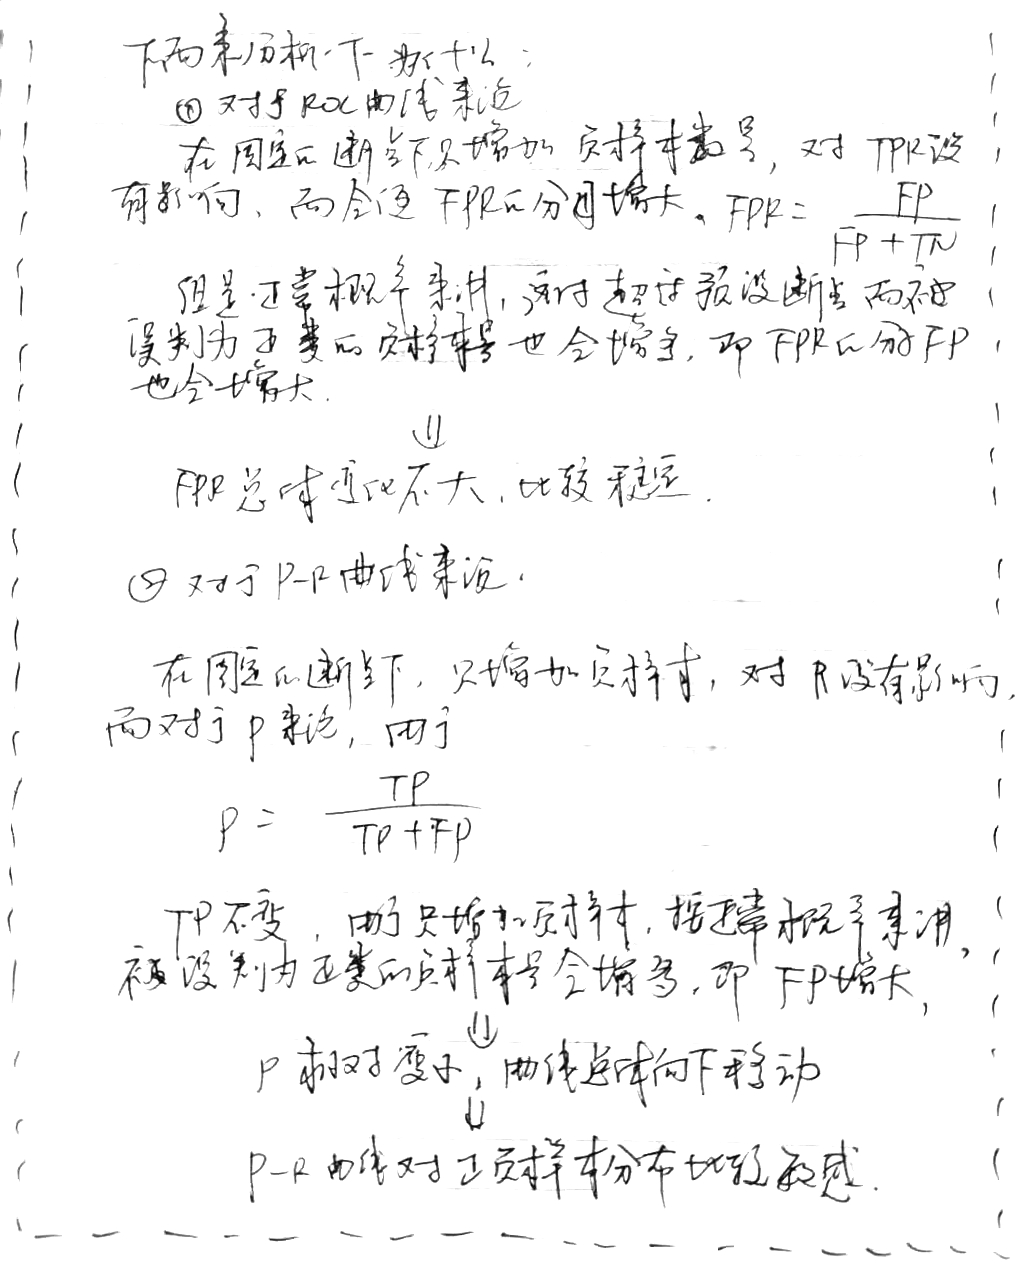 下面来分析一下为什么：
① 对于ROC曲线来说
在固定的断点下只增加负样本数量，对 TPR没
有影响，而会使 FPR的分母增大。FPR = FP / FP + TN
但是正常概率来讲，这时超过预设断点而被
误判为正类的负样本量也会增多，即 FPR的分子FP
也会增大.
⇓
FPR总体变化不大，比较稳定.
② 对于P-R曲线来说.
在固定的断点下，只增加负样本，对 R没有影响，
而对于P来说，由于
P = TP / TP + FP
TP不变，由于只增加负样本，按正常概率来讲，
被误判为正类的负样本量会增多，即 FP增大，
⇓
P相对变小，曲线总体向下移动
⇓
P-R曲线对正负样本分布比较敏感.